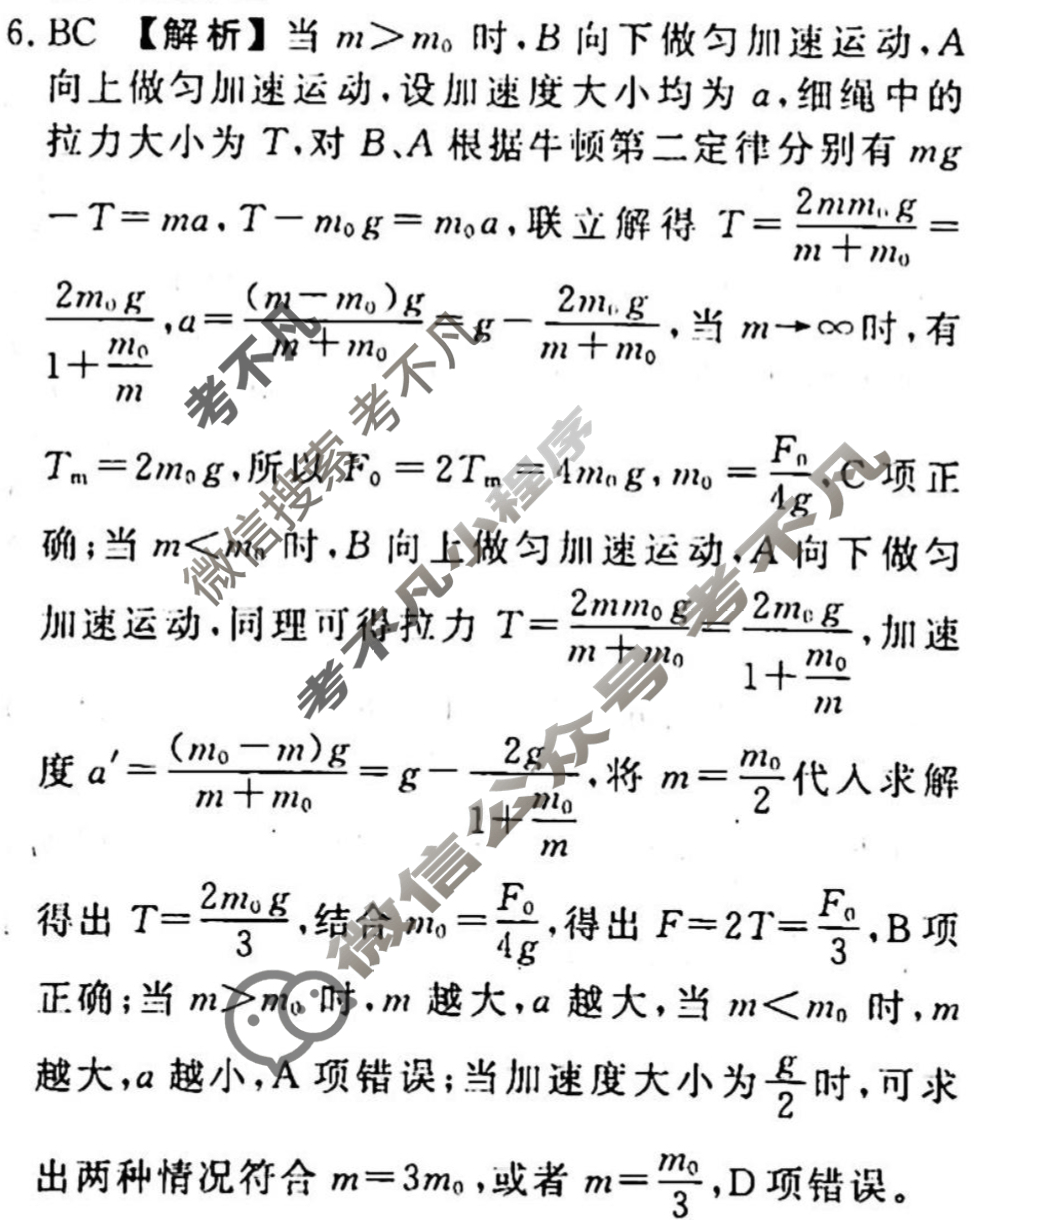 6. BC 【解析】当 m>m₀ 时,B 向下做匀加速运动,A
向上做匀加速运动,设加速度大小均为 a,细绳中的
拉力大小为 T,对 B、A 根据牛顿第二定律分别有 mg
－T＝ma,T－m₀g＝m₀a,联立解得 T＝2mm₀g/(m＋m₀)＝
2m₀g/(1＋m₀/m),a＝(m－m₀)g/(m＋m₀)＝g－2m₀g/(m＋m₀),当 m→∞时,有
Tₘ＝2m₀g,所以 F₀＝2Tₘ＝4m₀g,m₀＝F₀/4g,C 项正
确;当 m<m₀ 时,B 向上做匀加速运动,A 向下做匀
加速运动,同理可得拉力 T＝2mm₀g/(m＋m₀)＝2m₀g/(1＋m₀/m),加速
度 a′＝(m₀－m)g/(m＋m₀)＝g－2g/(1＋m₀/m),将 m＝m₀/2 代入求解
得出 T＝2m₀g/3,结合 m₀＝F₀/4g,得出 F＝2T＝F₀/3,B 项
正确;当 m>m₀ 时,m 越大,a 越大,当 m<m₀ 时,m
越大,a 越小,A 项错误;当加速度大小为 g/2 时,可求
出两种情况符合 m＝3m₀,或者 m＝m₀/3,D 项错误。
考不凡
微信搜索 考不凡
考不凡小程序
微信公众号 考不凡